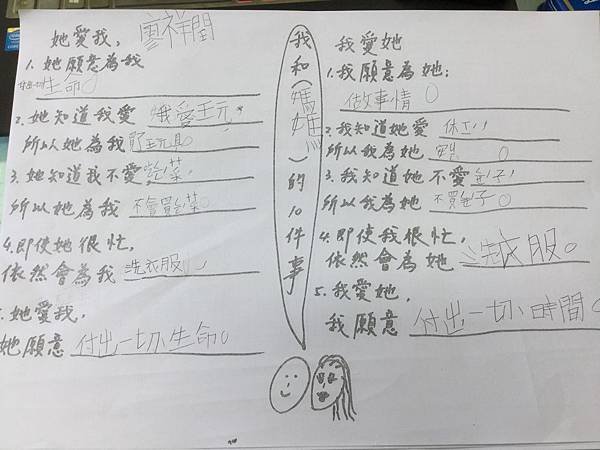 她愛我,
雲祥閏
1. 她願意為我
付出一切生命。
2. 她知道我愛 我愛玉元,
所以她為我 買玩具。
3. 她知道我不愛 菜,
所以她為我 不會買菜。
4. 即使她很忙,
依然會為我 洗衣服,
她愛我,
她願意 付出一切生命。
我和(媽媽)的10件事
我愛她
1. 我願意為她:
做事情。
2. 我知道她愛 休
所以我為她
3. 我知道她不愛 子,
所以我為她 不買 子。
4. 即使我很忙,
依然會為她 洗衣服。
5. 我愛她,
我願意 付出一切時間。